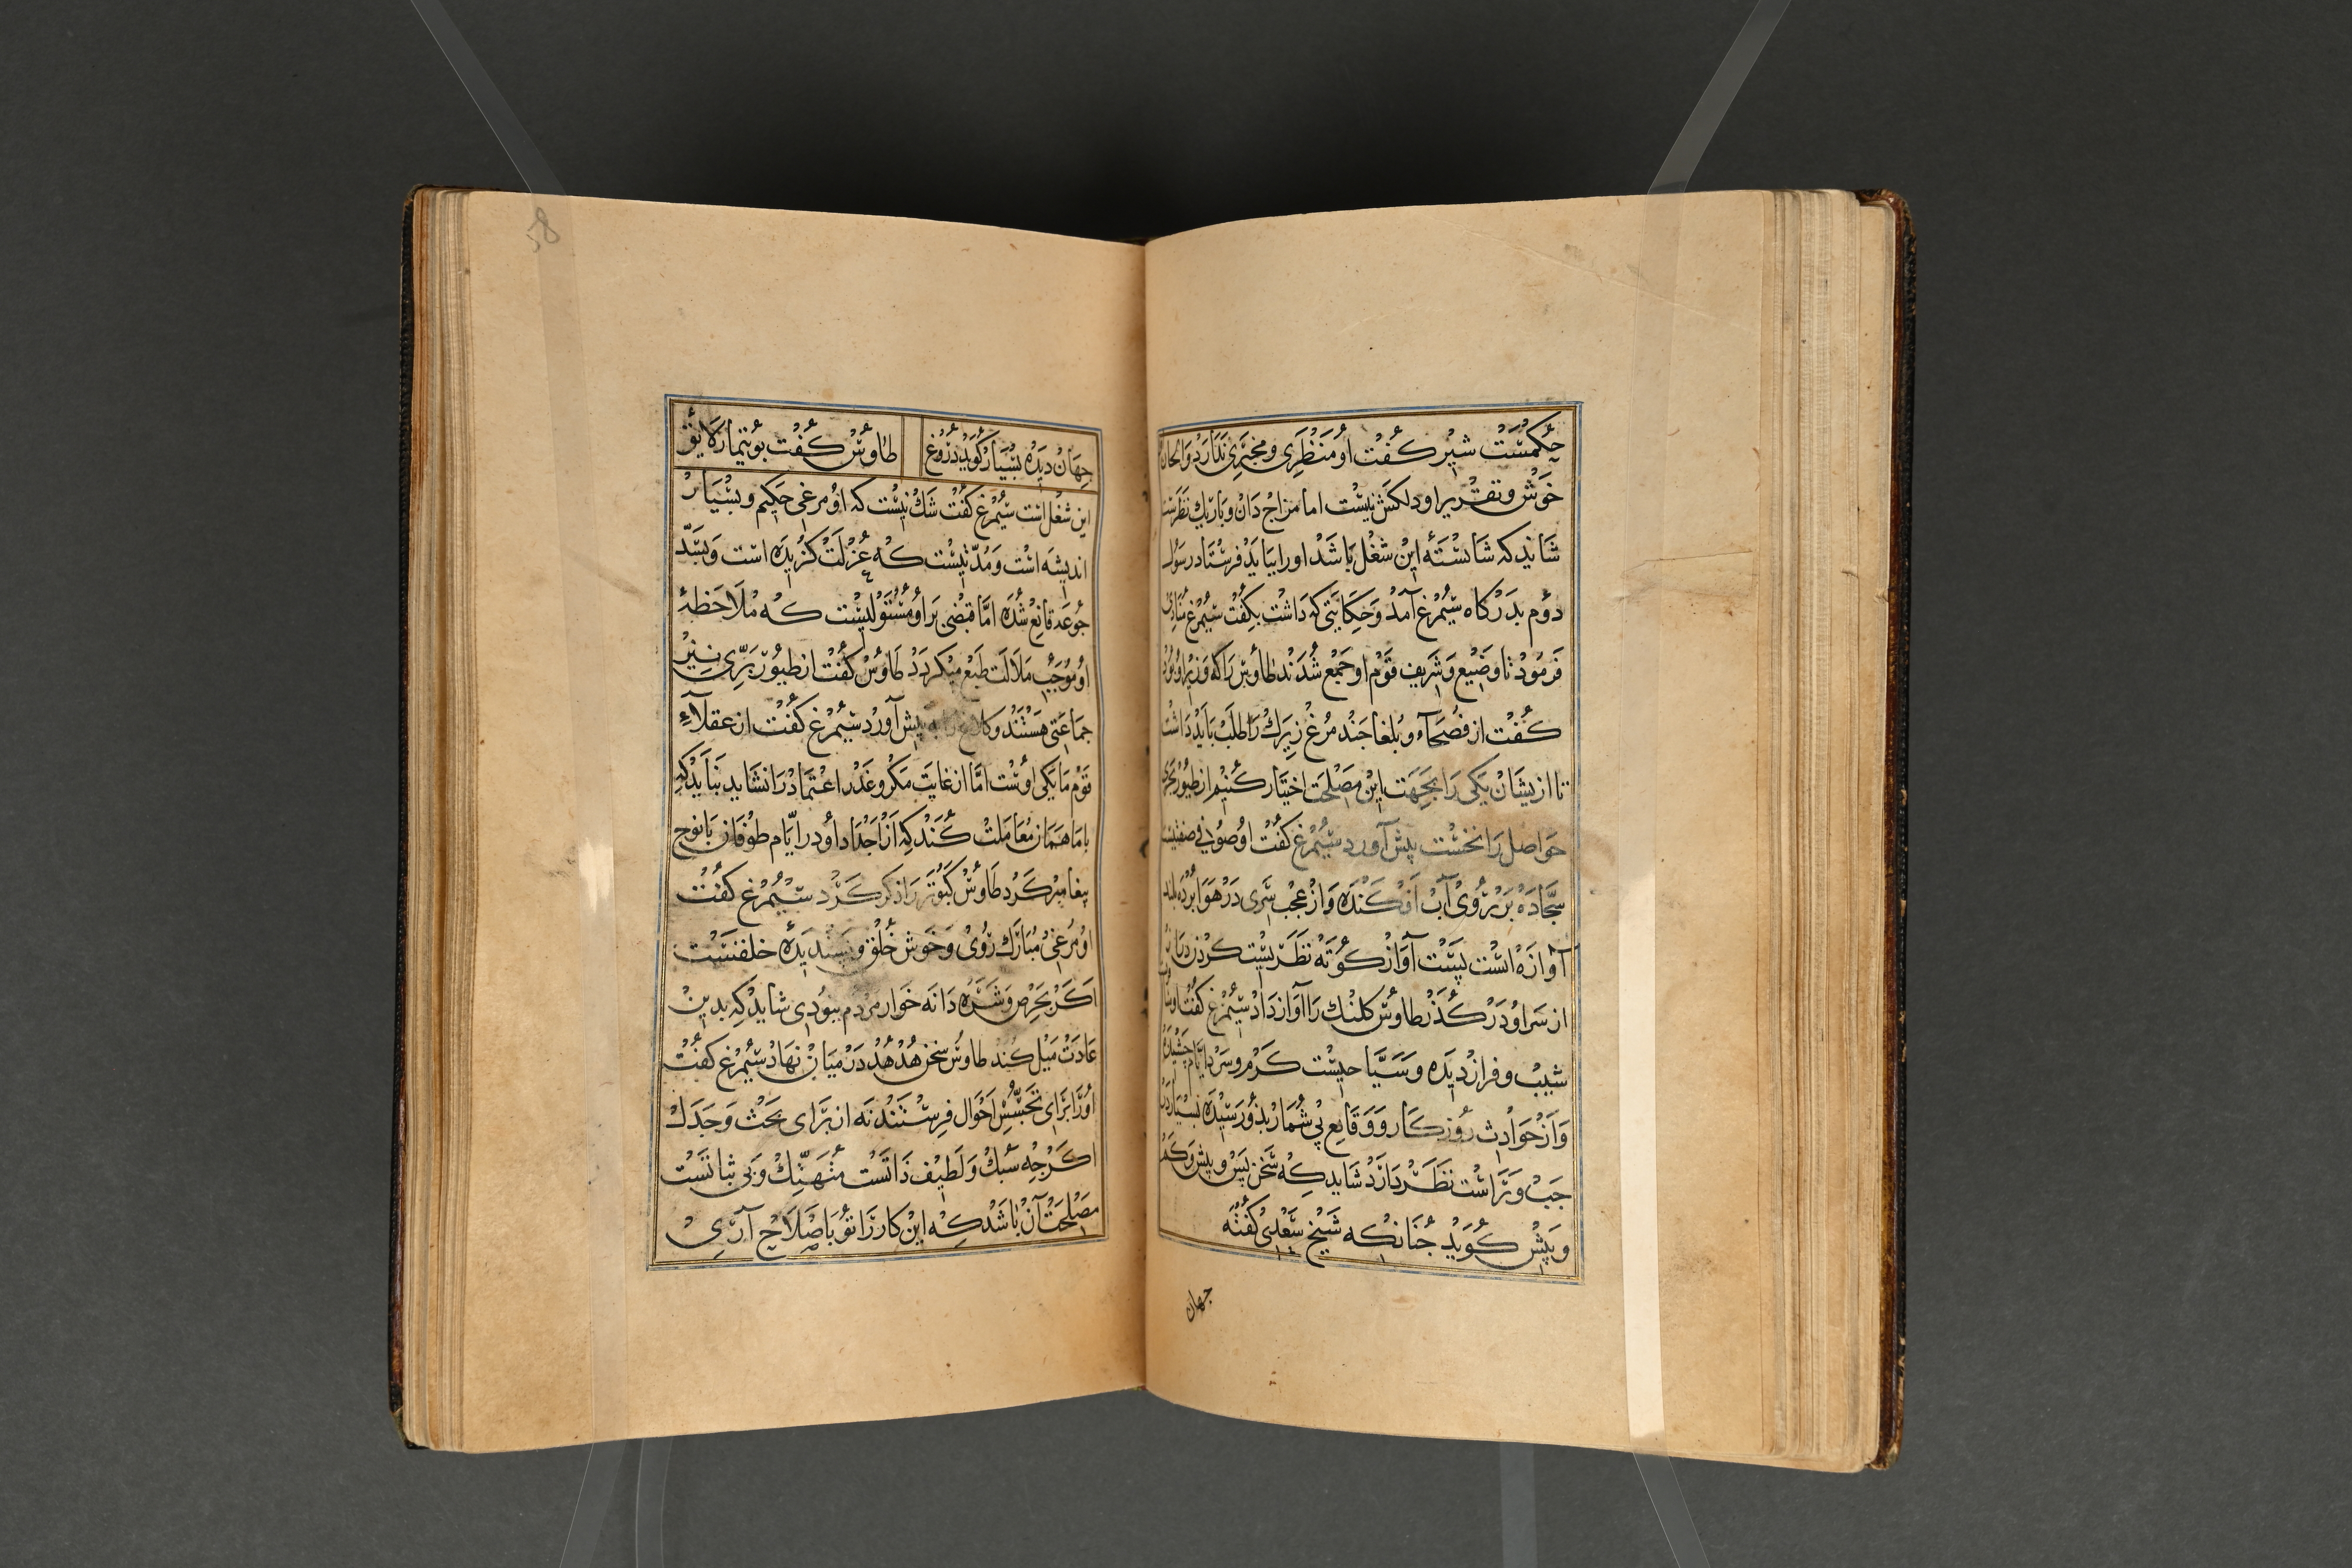 حکمتست شیر کفت او منظری و مخبری ندارد و الحان
خوش و تقریر او دلکش نیست اما مزاج دان و باریك نظرست
شاید که شایستهٔ این شغل باشد اورا بباید فرستاد رسول
دوم بدرکاه سیمرغ آمد و حکایتی که داشت بکفت سیمرغ منادی
فرمود تا وضیع و شریف قوم او جمع شدند طاوس را که وزیر او بود
کفت از فصحاء و بلغا جند مرغ زیرك را طلب باید داشت
تا از یشان یکی را بجهت این مصلحت اختیار کنیم از طیور بحری
حواصل را نخست پیش آورد سیمرغ کفت او صوفی صفتیست
سجاده بر روی آب افکنده و از عجب سری در هوا برده بلند
آوازه است پست آواز کوته نظریست کردن
از سر او در کذر طاوس کلنك را آواز داد سیمرغ کفت او
شیب و فراز دیده و سیاحیست کرم و سرد ایام چشیده
و از حوادث روزکار و وقایع بی شمار بذو رسیده بسیار در
جب و راست نظر دارد شاید که سخن پس و پیش و کم
و بیش کوید جنانکه شیخ سعدی کفته
جهان
58
جهان دیده بسیار کوید دروغ طاوس کفت بوتیمار لایق
این شغل است سیمرغ کفت شك نیست که او مرغی حکیم و بسیار
اندیشه است و مدتیست که عزلت کزیده است و بسد
جوعه قانع شده اما قبضی بر او مستولیست که ملاحظهٔ
او موجب ملالت طبع میکردد طاوس کفت از طیور بری نیز
جماعتی هستند و کلاغ را به پیش آورد سیمرغ کفت از عقلاء
قوم ما یکی اوست اما از غایت مکر و غدر اعتماد را نشاید نباید که
با ما همان معاملت کند که از اجداد او در ایام طوفان با نوح
پیغامبر کرد طاوس کبوتر را ذکر کرد سیمرغ کفت
او مرغی مبارك روی و خوش خلق و پسندیده خلقتست
اکر بحرص و شره دانه خوار مردم نبودی شاید که بدین
عادت میل کند طاوس سخن هدهد در میان نهاد سیمرغ کفت
اورا برای تجسس احوال فرستند نه از برای بحث و جدل
اکرجه سبك و لطیف ذاتست متهتك و بی ثباتست
مصلحت آن باشد که این کار را تو باصلاح آری